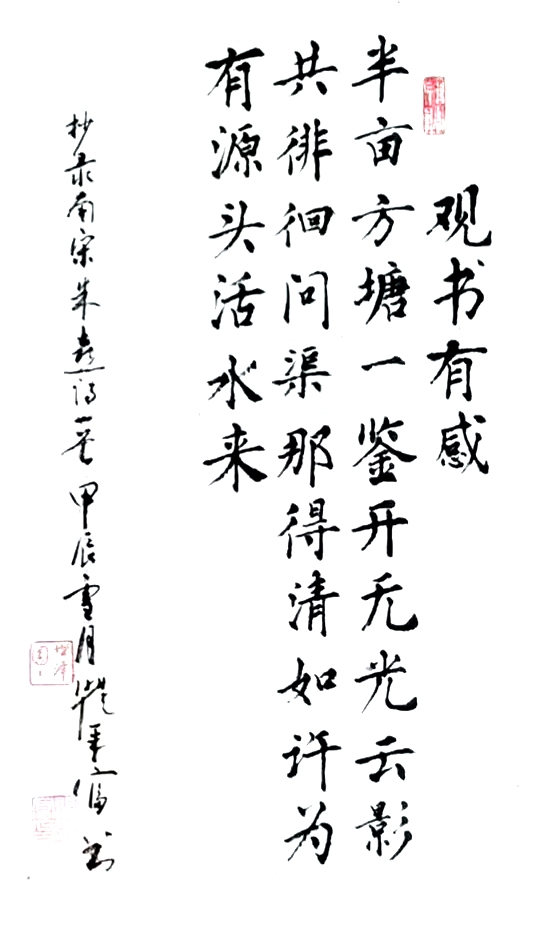 观书有感
半亩方塘一鉴开无光云影
共徘徊问渠那得清如许为
有源头活水来
抄录南宋朱熹诗一首 甲辰雪月